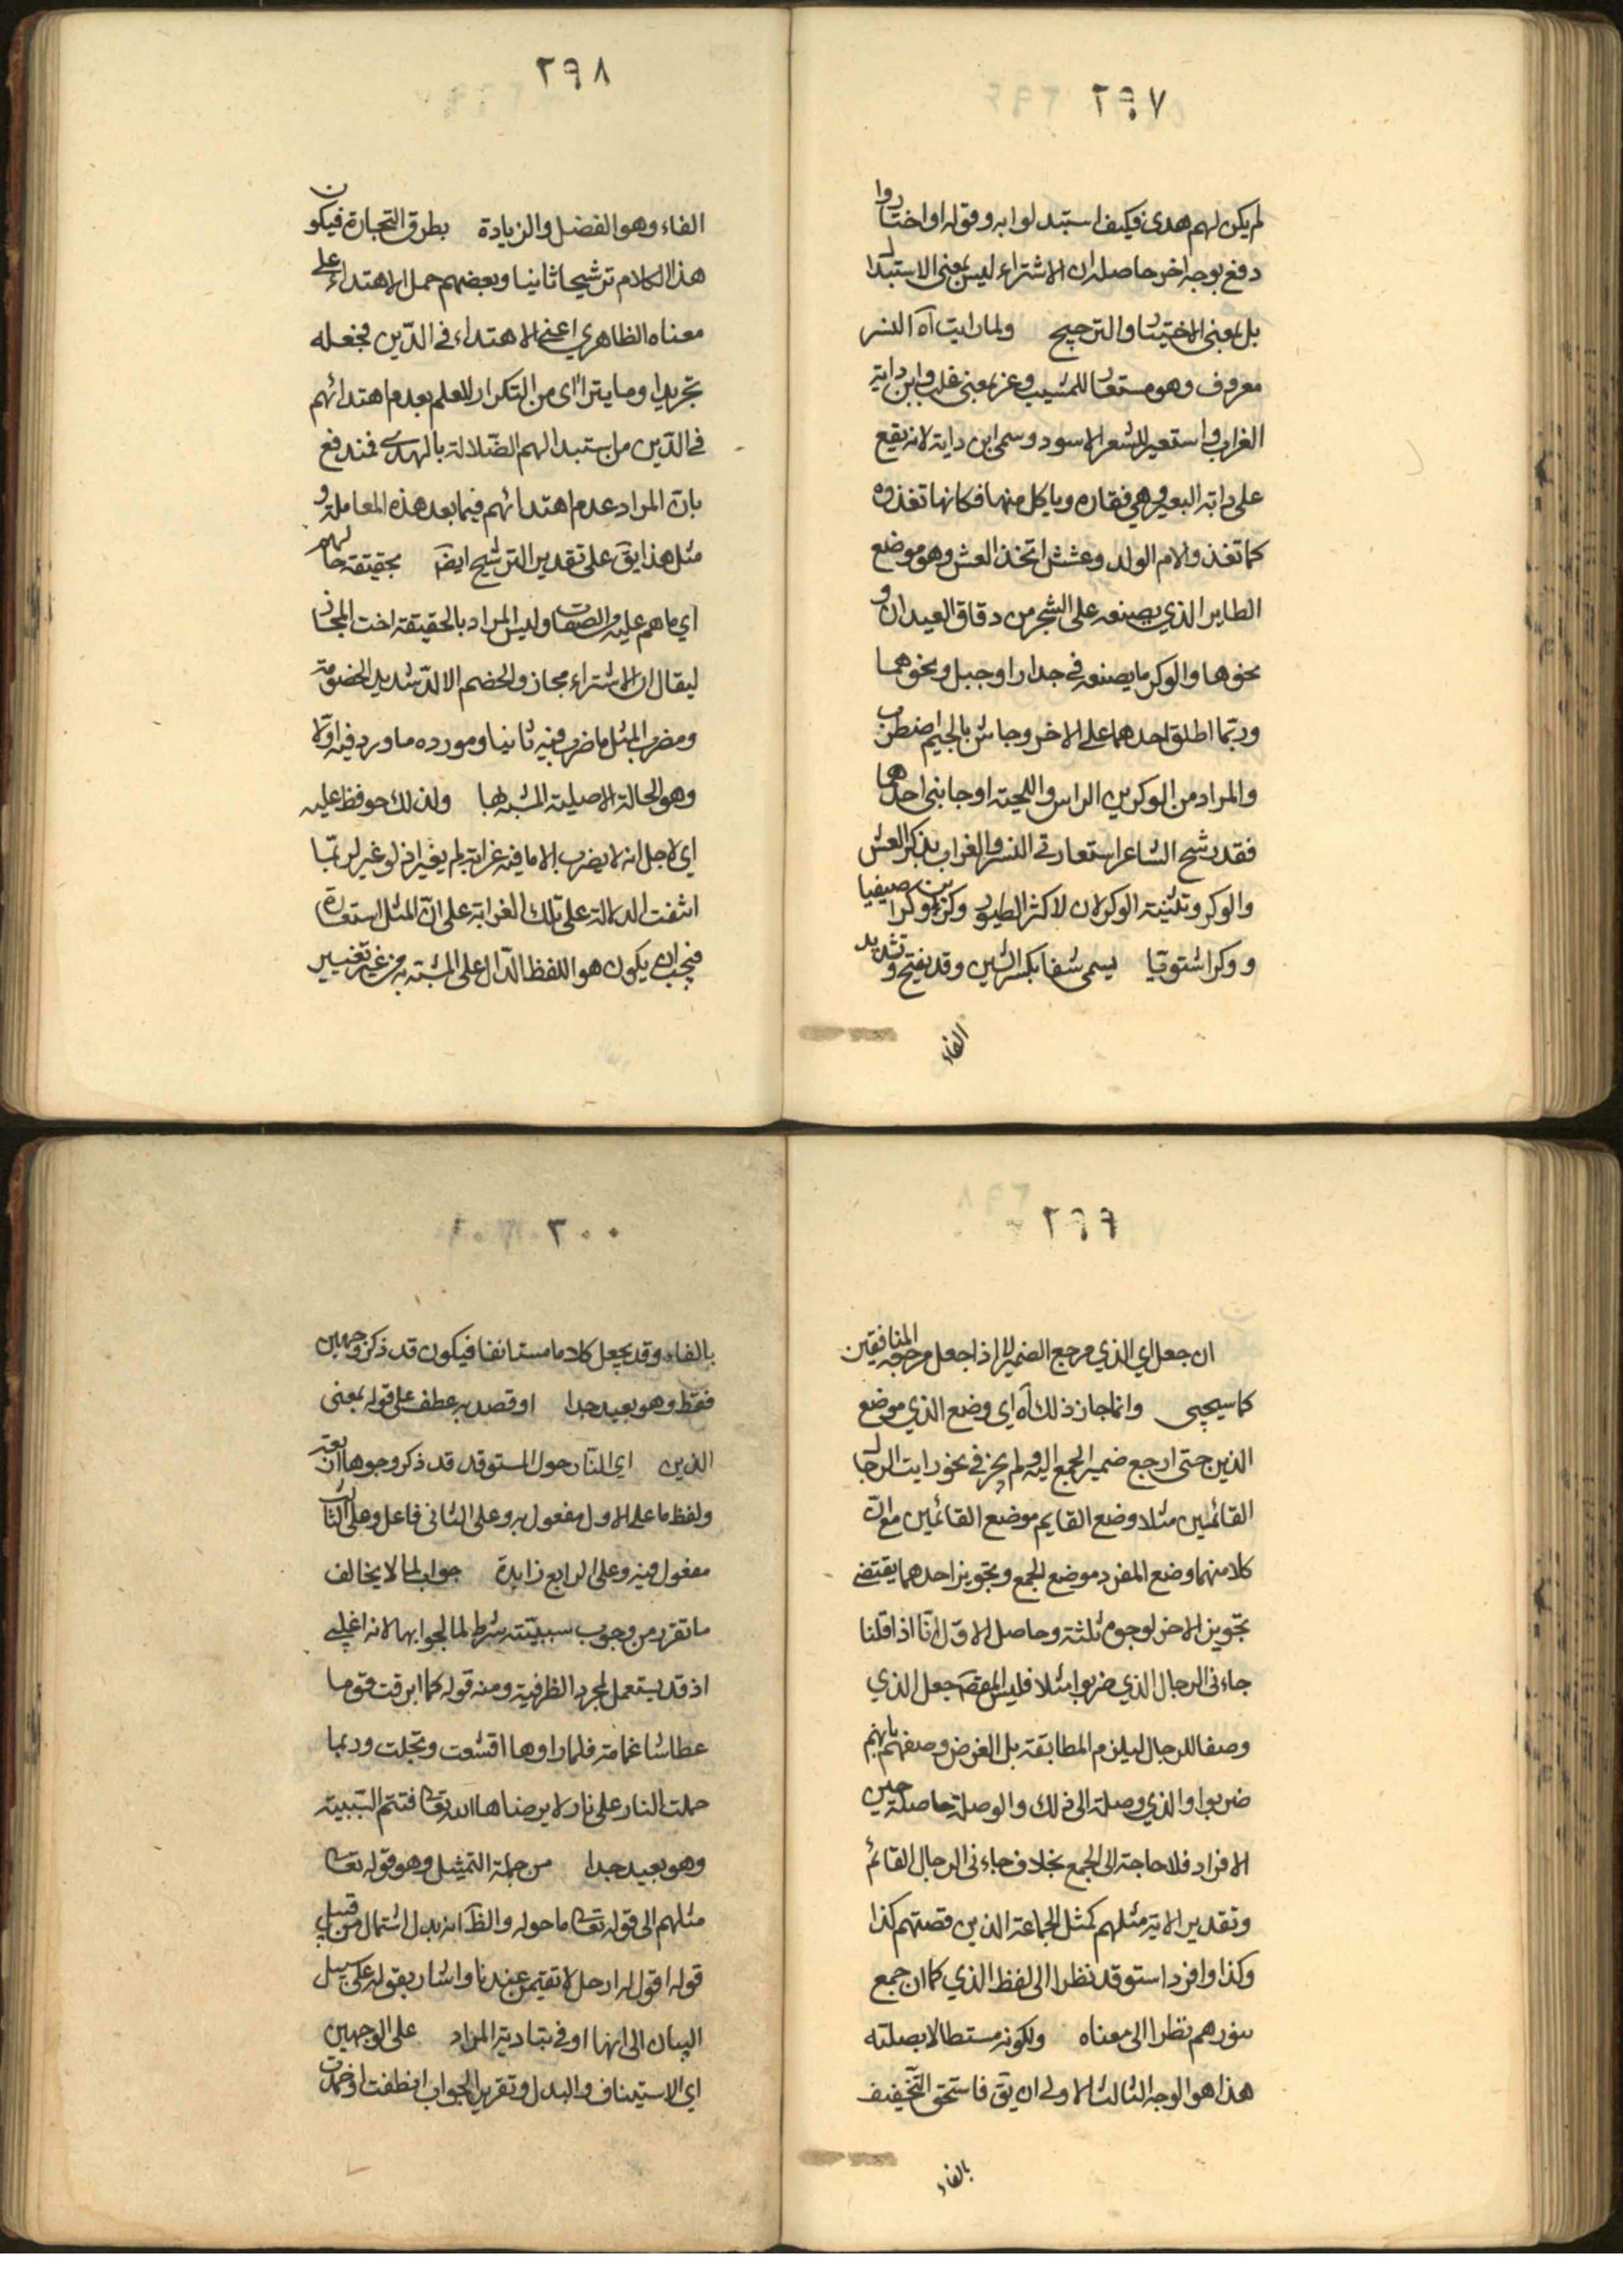 ٢٩٧
لم يكن لهم هدى فكيف استبدلوا به وقوله او اختاروا
دفع بوجه اخر حاصله ان الاشتراء ليس بمعنى الاستبدال
بل بمعنى الاختيار والترجيح ولما رايت آه النسر
معروف وهو مستعار للمشيب وعز بمعنى غلب وابن داية
الغراب واستعير للشعر الاسود وسمى ابن داية لانه يقع
على داية البعير وهي فقاره وياكل منها فكانها تغذوه
كما تغذو الام الولد وعشش اتخذ العش وهو موضع
الطاير الذي يصنعه على الشجر من دقاق العيدان و
نحوها والوكر ما يصنعه في جدار او جبل ونحوهما
وربّما اطلق احدهما على الاخر وجاش بالجيم اضطرب
والمراد من الوكرين الراس واللحية او جانبى احدهما
فقد رشح الشاعر استعارتي النسر والغراب بذكر العش
والوكر وتثنية الوكر لان لاكثر الطيور وكرين وكرا صيفيا
ووكرا شتويّا يسمى شفا بكسر الشين وقد يفتح وتشديد
الفاء
٢٩٨
الفاء وهو الفضل والزيادة بطرق التجارة فيكون
هذا الكلام ترشيحا ثانيا وبعضهم حمل الاهتداء على
معناه الظاهري اعنى الاهتداء في الدّين فجعله
تجريدا وما يتراأى من التكرار للعلم بعدم اهتدائهم
في الدّين من استبدالهم الضّلالة بالهدى فمندفع
بان المراد عدم اهتدائهم فيما بعد هذه المعاملة و
مثل هذا يق على تقدير الترشيح ايضا بحقيقة حالهم
اي ما هم عليه من الصفات وليس المراد بالحقيقة اخت المجاز
ليقال ان الاشتراء مجاز والخصم الالدّ شديد الخصومة
ومضرب المثل ما ضرب فيه ثانيا ومورده ما ورد فيه اوّلا
وهو الحالة الاصلية المشبه بها ولذلك حوفظ عليه
اي لاجل انه لا يضرب الا ما فيه غرابة لم يغير اذ لو غير لربّما
انتفت الدلالة على تلك الغرابة على انّ المثل استعارة
فيجب ان يكون هو اللفظ الدّال على المشبّه به من غير تغيير
٢٩٩
ان جعل اي الذي مرجع الضمير لا اذا جعل مرجعه المنافقين
كما سيجيى وانما جاز ذلك آه اي وضع الذي موضع
الذين حتى ارجع ضمير الجمع اليه ولم يجز في نحو رايت الرجال
القائمين مثلا وضع القايم موضع القائمين مع انّ
كلا منهما وضع المفرد موضع الجمع وتجويز احدهما يقتضى
تجويز الاخر لوجوه ثلثة وحاصل الاوّل انّا اذا قلنا
جاءنى الرجال الذي ضربوا مثلا فليس المقصود جعل الذي
وصفا للرجال ليلزم المطابقة بل الغرض وصفهم بانهم
ضربوا والذي وصلة الى ذلك والوصلة حاصلة حين
الافراد فلا حاجة الى الجمع بخلاف جاءنى الرجال القائم
وتقدير الاية مثلهم كمثل الجماعة الذين قصتهم كذا
وكذا وافرد استوقد نظرا الى لفظ الذي كما ان جمع
بنورهم نظرا الى معناه ولكونه مستطالا بصلته
هذا هو الوجه الثالث الاولى ان يق فاستحق التّخفيف
بالفاء
٣٠٠
بالفاء وقد يجعل كلاما مستانفا فيكون قد ذكر وجهين
فقط وهو بعيد جدا او قصد به عطف على قوله بمعنى
الذين اي النّار حول المستوقد قد ذكر وجوها اربعة
ولفظ ما على الاول مفعول به وعلى الثانى فاعل وعلى الثالث
مفعول فيه وعلى الرابع زايدة جواب لما لا يخالف
ما تقرر من وجوب سببيّة شرط لما لجوابها لانه اغلبى
اذ قد يستعمل لمجرد الظرفية ومنه قوله كما ابرقت قوما
عطاشا غمامة فلما راوها اقشعت وتجلت وربما
حملت النار على نار لا يرضاها الله تعالى فتتم السّببية
وهو بعيد جدا من جملة التمثيل وهو قوله تعالى
مثلهم الى قوله تعالى ما حوله والظ انه بدل اشتمال من قبيل
قوله اقول له ارحل لا تقيمن عندنا واشار بقوله على سبيل
البيان الى انها اوفى بتادية المراد على الوجهين
اي الاستيناف والبدل وتقرير الجواب انطفت او خمدت